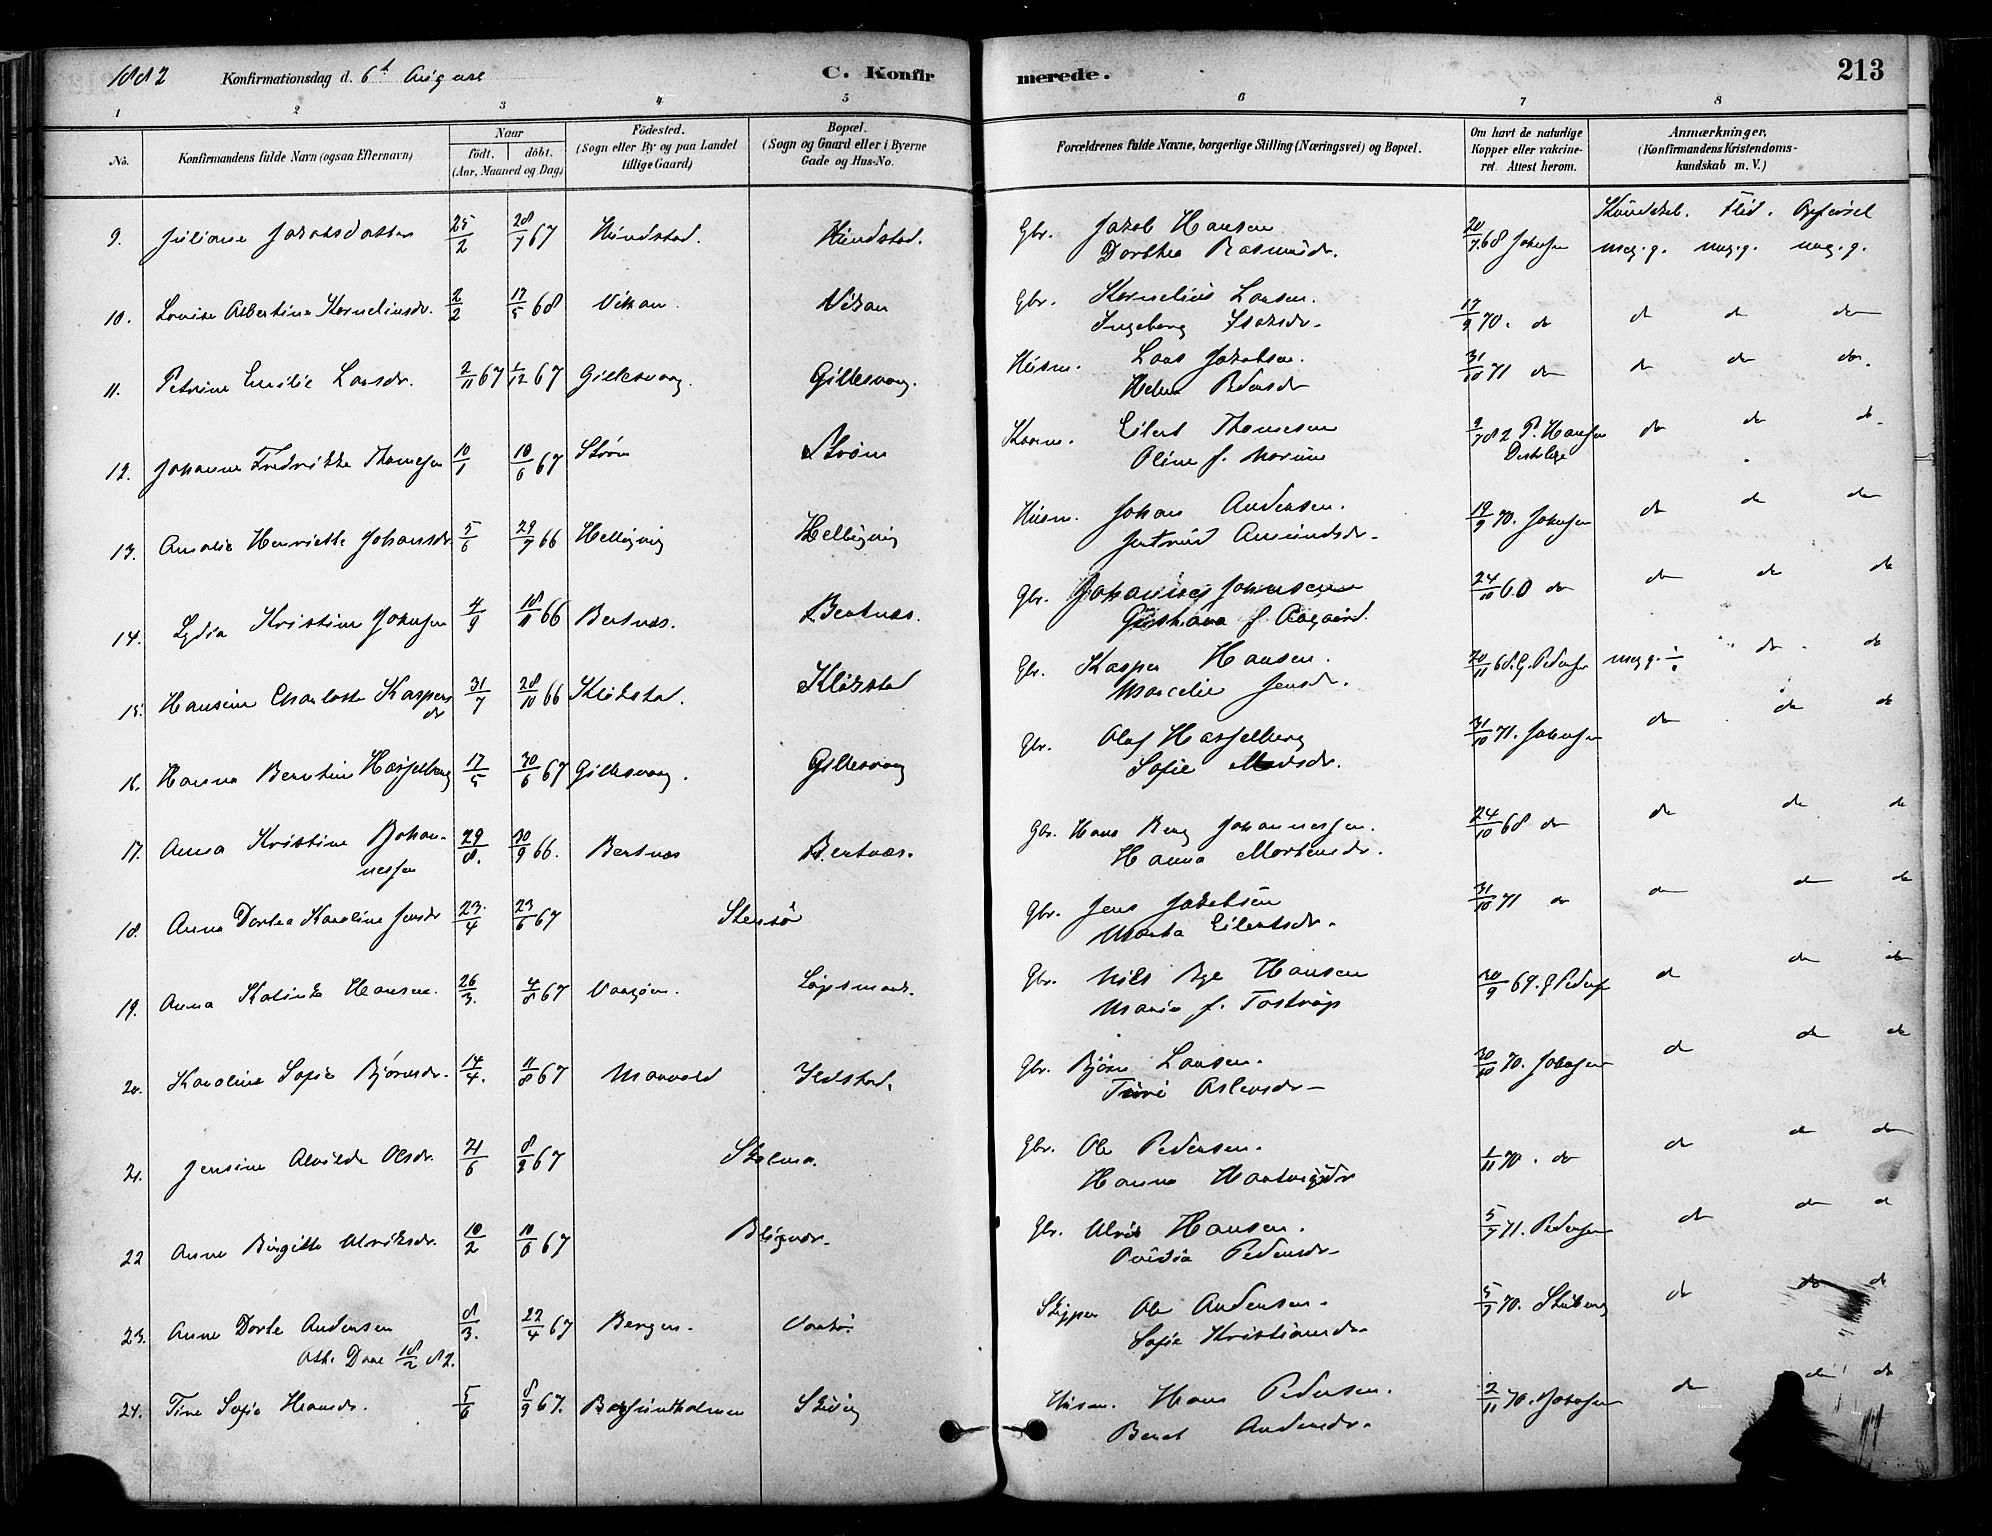 1882 Konfirmationsdag d. 6te August C. Konfirmerede. 213
1 2 3 4 5 6 7 8
No. Konfirmandens fulde Navn (ogsaa Efternavn) Naar født. døbt. (Aar, Maaned og Dag) Fødested. (Sogn eller By og paa Landet tillige Gaard) Bopæl. (Sogn og Gaard eller i Byerne Gade og Hus-No. Forældrenes fulde Navne, borgerlige Stilling (Næringsvei) og Bopæl. Om havt de naturlige Kopper eller vakcineret. Attest herom. Anmærkninger. (Konfirmandens Kristendomskundskab m. V.)
Kundskab. Flid. Opførsel
9. Juliane Jakobsdatter 25/2 28/7 67 Hundstad. Hundstad. Gbr. Jakob Hansen 20/7 68 Johnsen meg. g. meg. g. meg. g.
Dorthea Rasmusdr.
10. Lovise Albertine Kornelinsdr. 2/2 17/5 68 Vikan. Vikan Gbr. Kornelius Larsen. 17/9 70. do do do do
Ingeborg Isaksdr.
11. Petrine Emilie Larsdr. 2/11 67 1/12 67 Gillesvaag. Gillesvaag. Husm. Lars Jakobsen. 31/10 71 do do do do.
Helena Pedersdr
12. Johanne Fredrikke Thomesen 10/1 10/6 67 Strøm Strøm Eilert Thomesen 9/7 82 P. Hansen do do do
Oline f.
13. Amalie Henriette Johansdr. 5/6 29/7 66 Helligvig Helligvig Husm. Johan Andersen. 19/9 70. Johnsen do do do
Jertrud Amundsdr.
14. Lydia Kristine Johnsen 4/9 18/11 66 Bertnæs. Bertnæs. Gbr. Johannes Johnsen 24/10 60 do do do do
f. Aagaard.
15. Hansine Charlotte Kaspersdr 31/7 28/10 66 Klokstad. Klokstad Gbr. Kasper Hansen. 20/11 68. G. Pedersen meg g. ÷ do. do
Marcelie Jensdr.
16. Hanna Berntine Hasselberg 17/5 30/6 67 Gillesvaag. Gillesvaag Gbr. Olaf Hasselberg 31/10 71. Johnsen do do do
Sofie
17. Anna Kristine Johannessen 29/8. 30/9 66. Bertnæs Bertnæs. Gbr. Hans Berg Johannessen. 24/10 68 do do do do
Hanna Mortensdr.
18. Anna Dortea Karoline Jensdr 23/4 23/6 67 Stensø Gbr. Jens Jakobsen 31/10 71 do do do do
Marta Eilertsdr.
19. Anna Katinka Hansen. 26/3. 4/8 67 Vaagøen. Løpsmark. Gbr. Nils Bye Hansen 30/9 69. G Pedersen do do do
Maria f. Tostrup
20. Karoline Sofie Bjørnsdr. 14/4. 11/8 67 Marvold Ildstad. Gbr. Bjørn Larsen. 30/10 70. Johnsen do do do
Aslaksdr
21. Jensine Alvilde Olsdr. 21/6 8/9 67 Skelma. Gbr. Ole Pedersen. 1/11 70. do do do do
Hanna Hartvigsdr
22 Anne Birgitte Ulriksdr. 10/2 10/6 67 Gbr. Ulrik Hansen. 5/7 71. Pedersen do do do
Ovidia Pedersdr
23. Anne Dorte Andersen 8/3. 22/4 67 Bergen. Skipper Ole Andersen. 5/7 70. do do do
Att. 18/2 82. Sofie Kristiansdr
24. Tine Sofie Hansdr. 5/6 8/9 67. Skivig Husm. Hans Pedersen. 2/11 70. Johnsen do do do
Beret Andersdr.